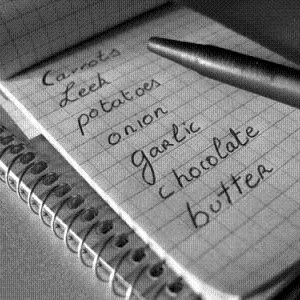 Carrots
Leek
potatoes
onion
garlic
chocolate
butter